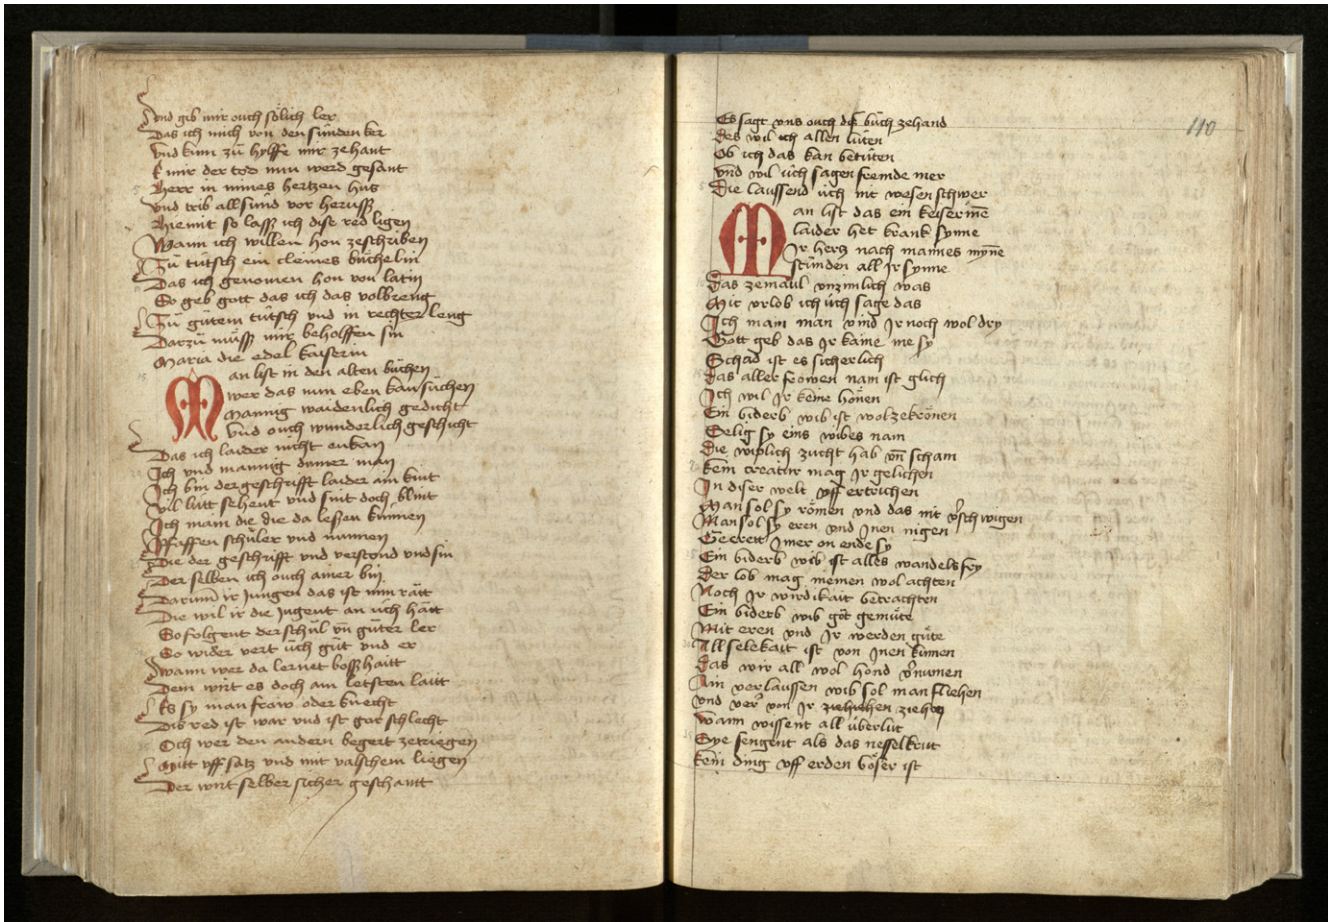 Vnd gib mir ouch sölich ler
Das ich mich von den sünden ker
Vnd kum zů hylffe mir ze hant
E mir der tod nun werd gesant
Herr in mines hertzen hus
Vnd trib all sünd vor heruß
Hie mit so lass ich dise red ligen
Wann ich willen hon ze schriben
Zů tütsch ein cleines büchelin
Das ich genomen hon von latin
So geb gott das ich das volbreng
Zů gůtem tütsch vnd in rechter leng
Darzů můß mir beholffen sin
Maria die edel kaiserin
Man list in den alten bůchen
wer das nun eben kan sůchen
Mannig waidenlich gedicht
Vnd ouch wunderlich geschicht
Das ich laider nicht enkan
Ich vnd mannig dumer man
Ich bin der geschrifft laider ain kint
Vil lütt sehent vnd sint doch blint
Ich main die die da leßen künnen
Pfaffen schůler vnd nunnen
Die der geschrifft vnd verstond vnd sin
Der selben ich ouch ainer bin
Darum̄ ir Jungen das ist min rätt
Die wil ir die Jugent an üch hätt
So folgent der schůl vn̄ gůter ler
So wider vert üch gůt vnd er
wann wer da lernet boßhaitt
Dem wirt es doch am letsten laitt
Es sy man frow oder knecht
Dis red ist war vnd ist gar schlecht
Och wer den andern begert ze triegen
Mitt vff satz vnd mit valschem liegen
Der wirt selber sicher geschantt
110
Es sagt vns ouch dis bůch zehand
Des wil ich allen lüten
Ob ich das kan betüten
Vnd wil üch sagen fremde mer
Die laussend üch nit wesen schwer
Man list das ein keiserin̄e
laider het krank synne
Ir hercz nach mannes myn̄e
stůnden all Jr synne
Das ze maul vnzimlich was
Mit vrlob ich üch sage das
Ich main man vind Jr noch wol dry
Gott geb das Jr kaine me sy
Schad ist es sicherlich
Das aller frowen nam ist glich
Ich wil Jr keine hönen
Ein biderb wib ist wol ze krönen
Selig sy eins wibes nam
Die wiplich zucht hab vn̄ scham
kein creatur mag Jr gelichen
In diser welt vff ertrichen
Man sol sy römen vnd das nit v̓schwigen
Man sol sy eren vnd Jnen nigen
Geerett Jmer on ende sy
Ein biderb wib ist alles wandels fry
Der lob mag niemen wol achten
Noch Jr wirdikait betrachten
Ein biderb wib gőt gemüte
Mit eren vnd Jr werden gůte
All selekait ist von Jnen kunnen
Das wir all wol hond v̓numen
Ain verlaussen wib sol man fliehen
Vnd ver von Jr ziehen
Wann wissent all überlut
Sye sengent als das nesselkrut
kein ding vff erden böser ist